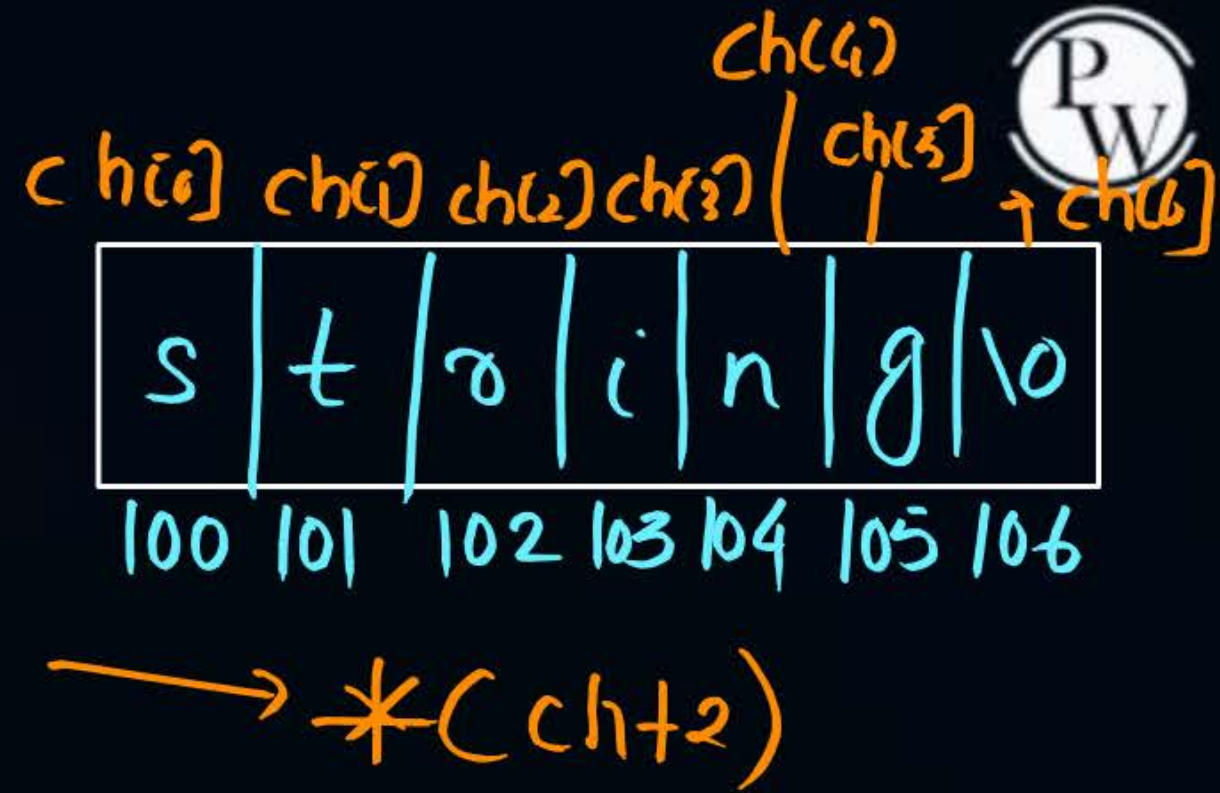 ch[4]
PW
ch[5]
ch[0] ch[1] ch[2] ch[3] ch[6]
s t r i n g \0
100 101 102 103 104 105 106
*(ch+2)